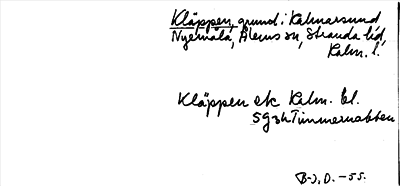 Kläppen, grund i Kalmarsund
Nyemåla, Ålems sn, Stranda hd,
Kalm. l.
Kläppen ek Kalm. bl.
5g3h Timmernabben
B-J, D. -55.